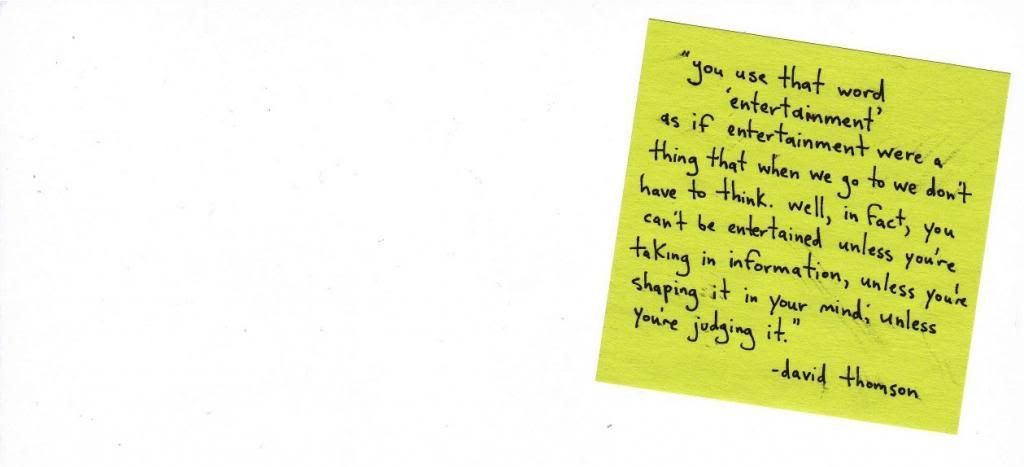 "you use that word
'entertainment'
as if entertainment were a
thing that when we go to we don't
have to think. well, in fact, you
can't be entertained unless you're
taking in information, unless you're
shaping it in your mind; unless
you're judging it."
-david thomson